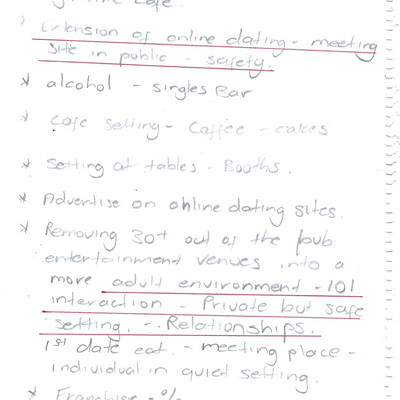 cafe.
* Extension of online dating - meeting
site in public - safety.
* alcohol - singles Bar
* Cafe setting - Coffee - cakes
* Setting at tables - Booths.
* Advertise on online dating sites.
* Removing 30+ out of the pub
entertainment venues into a
more adult environment - 101
interaction - Private but safe
setting. - Relationships.
1st date eat. - meeting place -
individual in quiet setting.
* Franchise - %